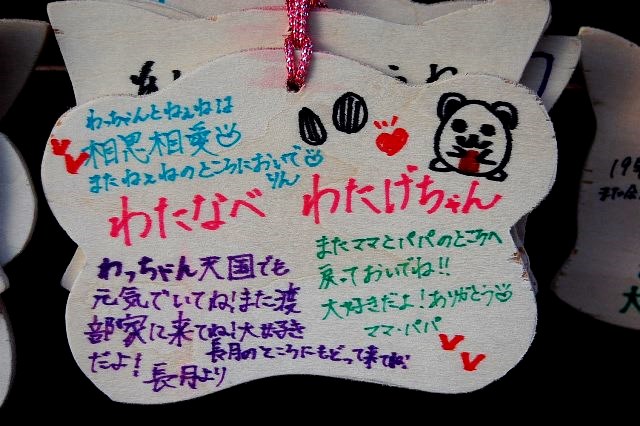 わっちゃんとねぇねは
相思相愛
またねぇねのところにおいで
りん
わたなべ わたげちゃん
わっちゃん天国でも
元気でいてね!また渡
部家に来てね!大好き
だよ!
長月のところにもどって来てね!
長月より
またママとパパのところへ
戻っておいでね!!
大好きだよ!ありがとう
ママ・パパ